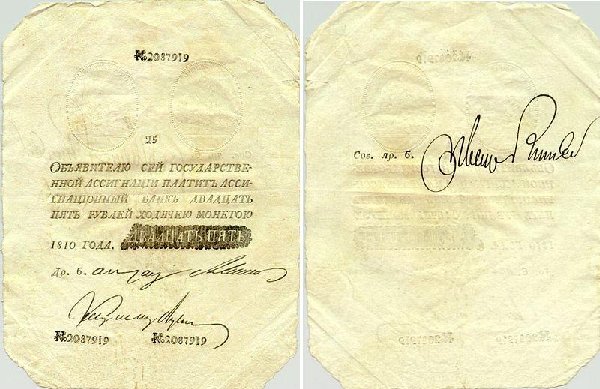 №2087919
25
ОБЪЯВИТЕЛЮ СЕЙ ГОСУДАРСТВЕ-
ННОЙ АССИГНАЦIИ ПЛАТИТЪ АССИ-
ГНАЦIОННЫЙ БАНКЪ ДВАДЦАТЬ
ПЯТЬ РУБЛЕЙ ХОДЯЧЕЮ МОНЕТОЮ
1810 ГОДА. ДВАДЦАТЬ ПЯТЬ
Др. б.
№2087919 №2087919
Сов. пр. б.